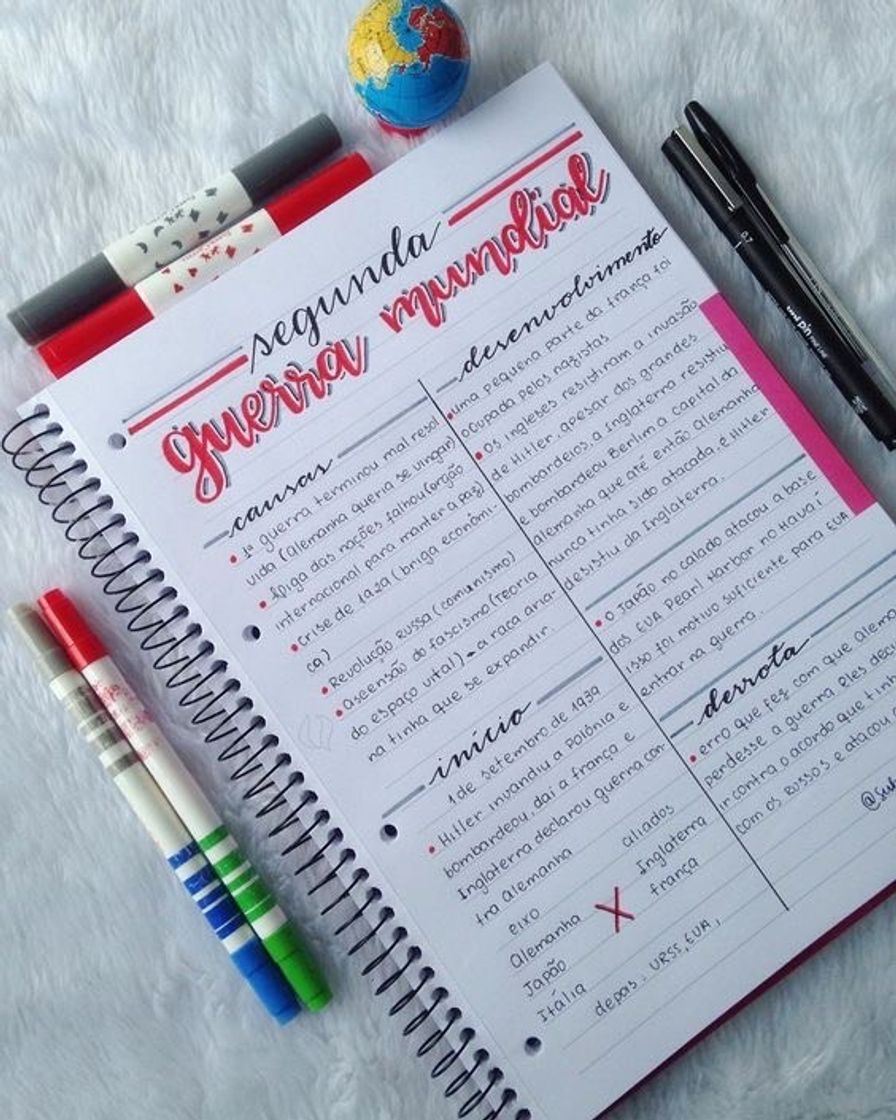 segunda
guerra mundial
causas
1ª guerra terminou mal resol
vida (Alemanha queria se vingar)
A liga das nações falhou (orgão
internacional para manter a paz)
Crise de 1929 (briga econômi-
ca)
Revolução Russa (comunismo)
Ascensão do fascismo (Teoria
do espaço vital) → a raça aria-
na tinha que se expandir.
início
1 de setembro de 1939
Hitler invandiu a Polônia e
bombardeou, daí a frança e
Inglaterra declarou guerra con-
tra Alemanha
eixo
Alemanha
Japão
Itália
X
aliados
Inglaterra
frança
depois: URSS, EUA,
desenvolvimento
uma pequena parte da frança foi
ocupada pelos nazistas
Os ingleses resistiram a invasão
de Hitler, apesar dos grandes
bombardeios, a Inglaterra resistiu
e bombardeou Berlim a capital da
Alemanha que até então Alemanha
nunca tinha sido atacada. e Hitler
desistiu da Inglaterra.
O Japão no calado atacou a base
dos EUA Pearl Harbor no Havaí
isso foi motivo suficiente para EUA
entrar na guerra.
derrota
erro que fez com que Alem
perdesse a guerra Eles deci
ir contra o acordo que tin
com os RUSSOS e atacou
uni pin
0.7